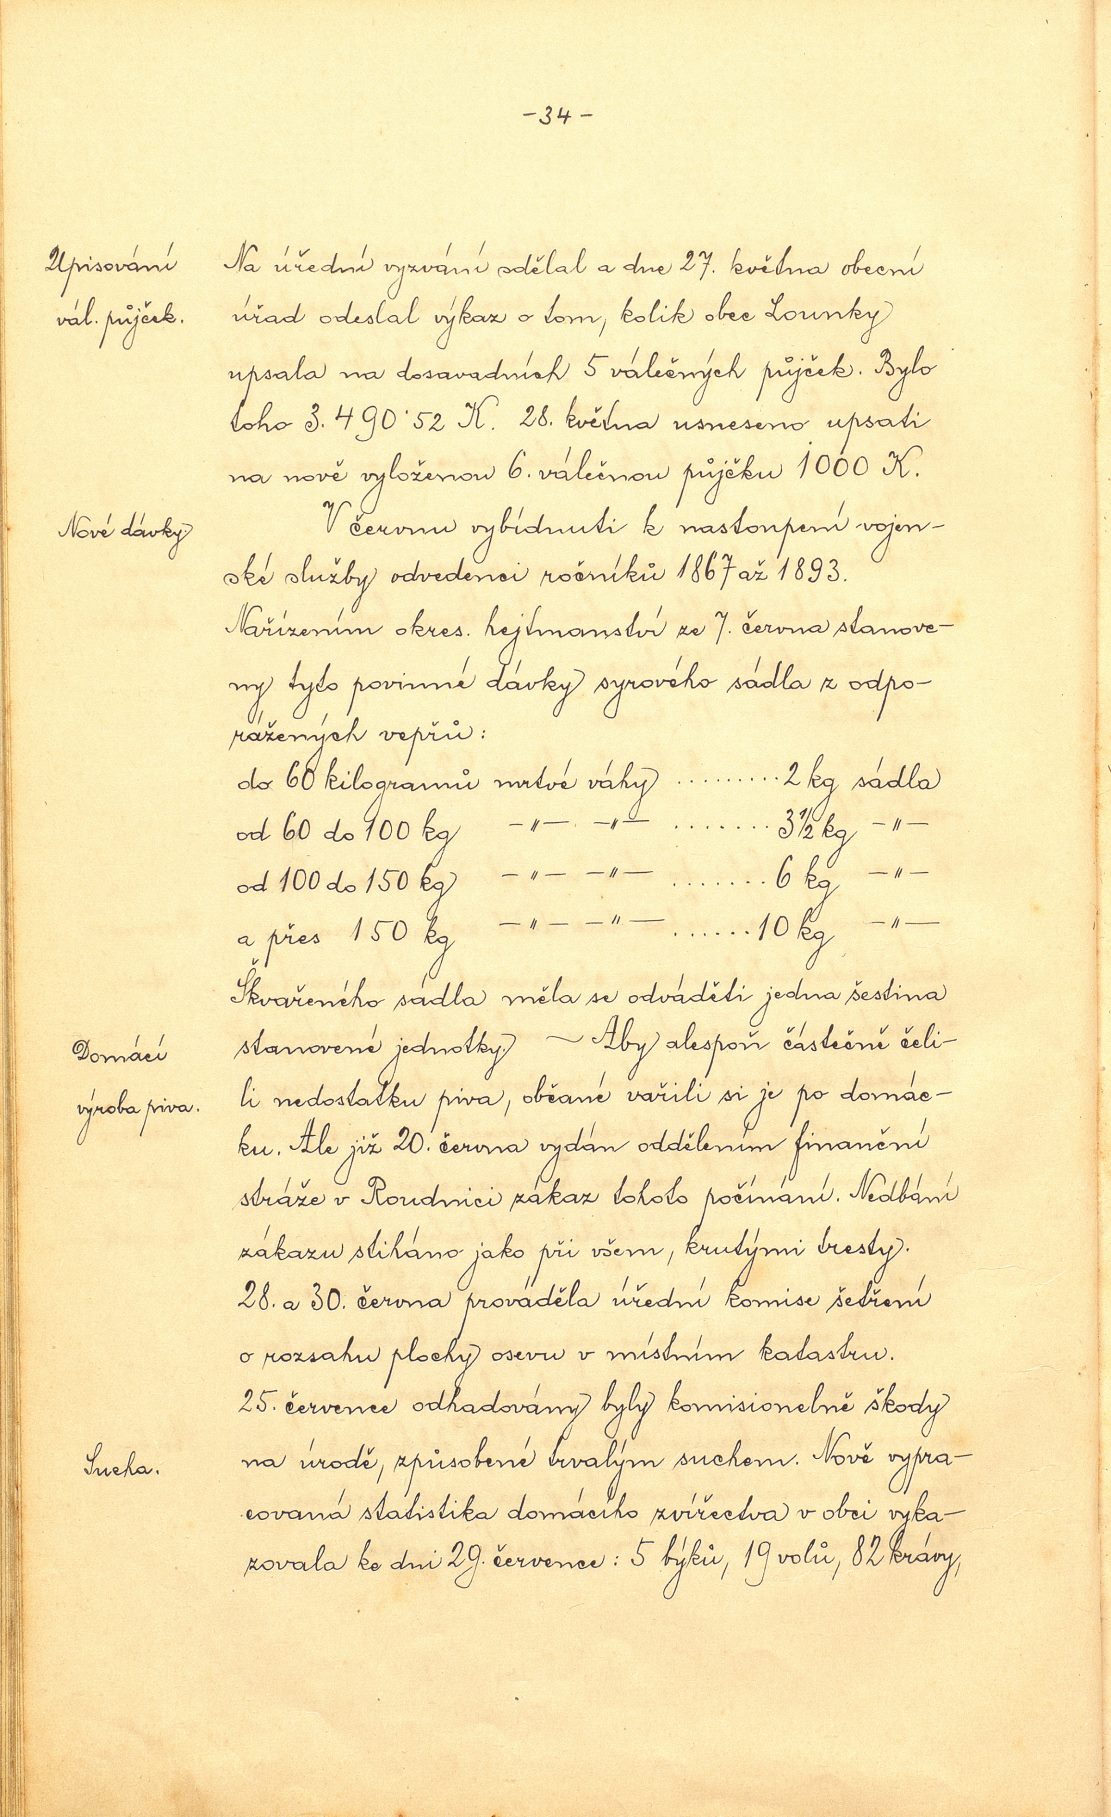 -34-
Upisování
vál. půjček.
Na úřední vyzvání sdělal a dne 27. května obecní
úřad odeslal výkaz o tom, kolik obec Lounky
upsala na dosavadních 5 válečných půjček. Bylo
toho 3.490'52 K. 28. května usneseno upsati
na nově vyloženou 6. válečnou půjčku 1000 K.
Nové dávky
V červnu vybídnuti k nastoupení vojen-
ské služby odvedenci ročníků 1867 až 1893.
Nařízením okres. hejtmanství ze 7. června stanove-
ny tyto povinné dávky syrového sádla z odpo-
rážených vepřů:
do 60 kilogramů mrtvé váhy ......... 2 kg sádla
od 60 do 100 kg —"— —"— ........ 3½ kg —"—
od 100 do 150 kg —"— —"— ....... 6 kg —"—
a přes 150 kg —"— —"— ...... 10 kg —"—
Škvařeného sádla měla se odváděti jedna šestina
Domácí
výroba piva.
stanovené jednotky. ~ Aby alespoň částečně čeli-
li nedostatku piva, občané vařili si je po domác-
ku. Ale již 20. června vydán oddělením finanční
stráže v Roudnici zákaz tohoto počínání. Nedbání
zákazu stiháno jako při všem, krutými tresty.
28. a 30. června prováděla úřední komise šetření
o rozsahu plochy osevu v místním katastru.
25. července odhadovány byly komisionelně škody
Sucha.
na úrodě, způsobené trvalým suchem. Nově vypra-
covaná statistika domácího zvířectva v obci vyka-
zovala ke dni 29. července: 5 býků, 19 volů, 82 krávy,